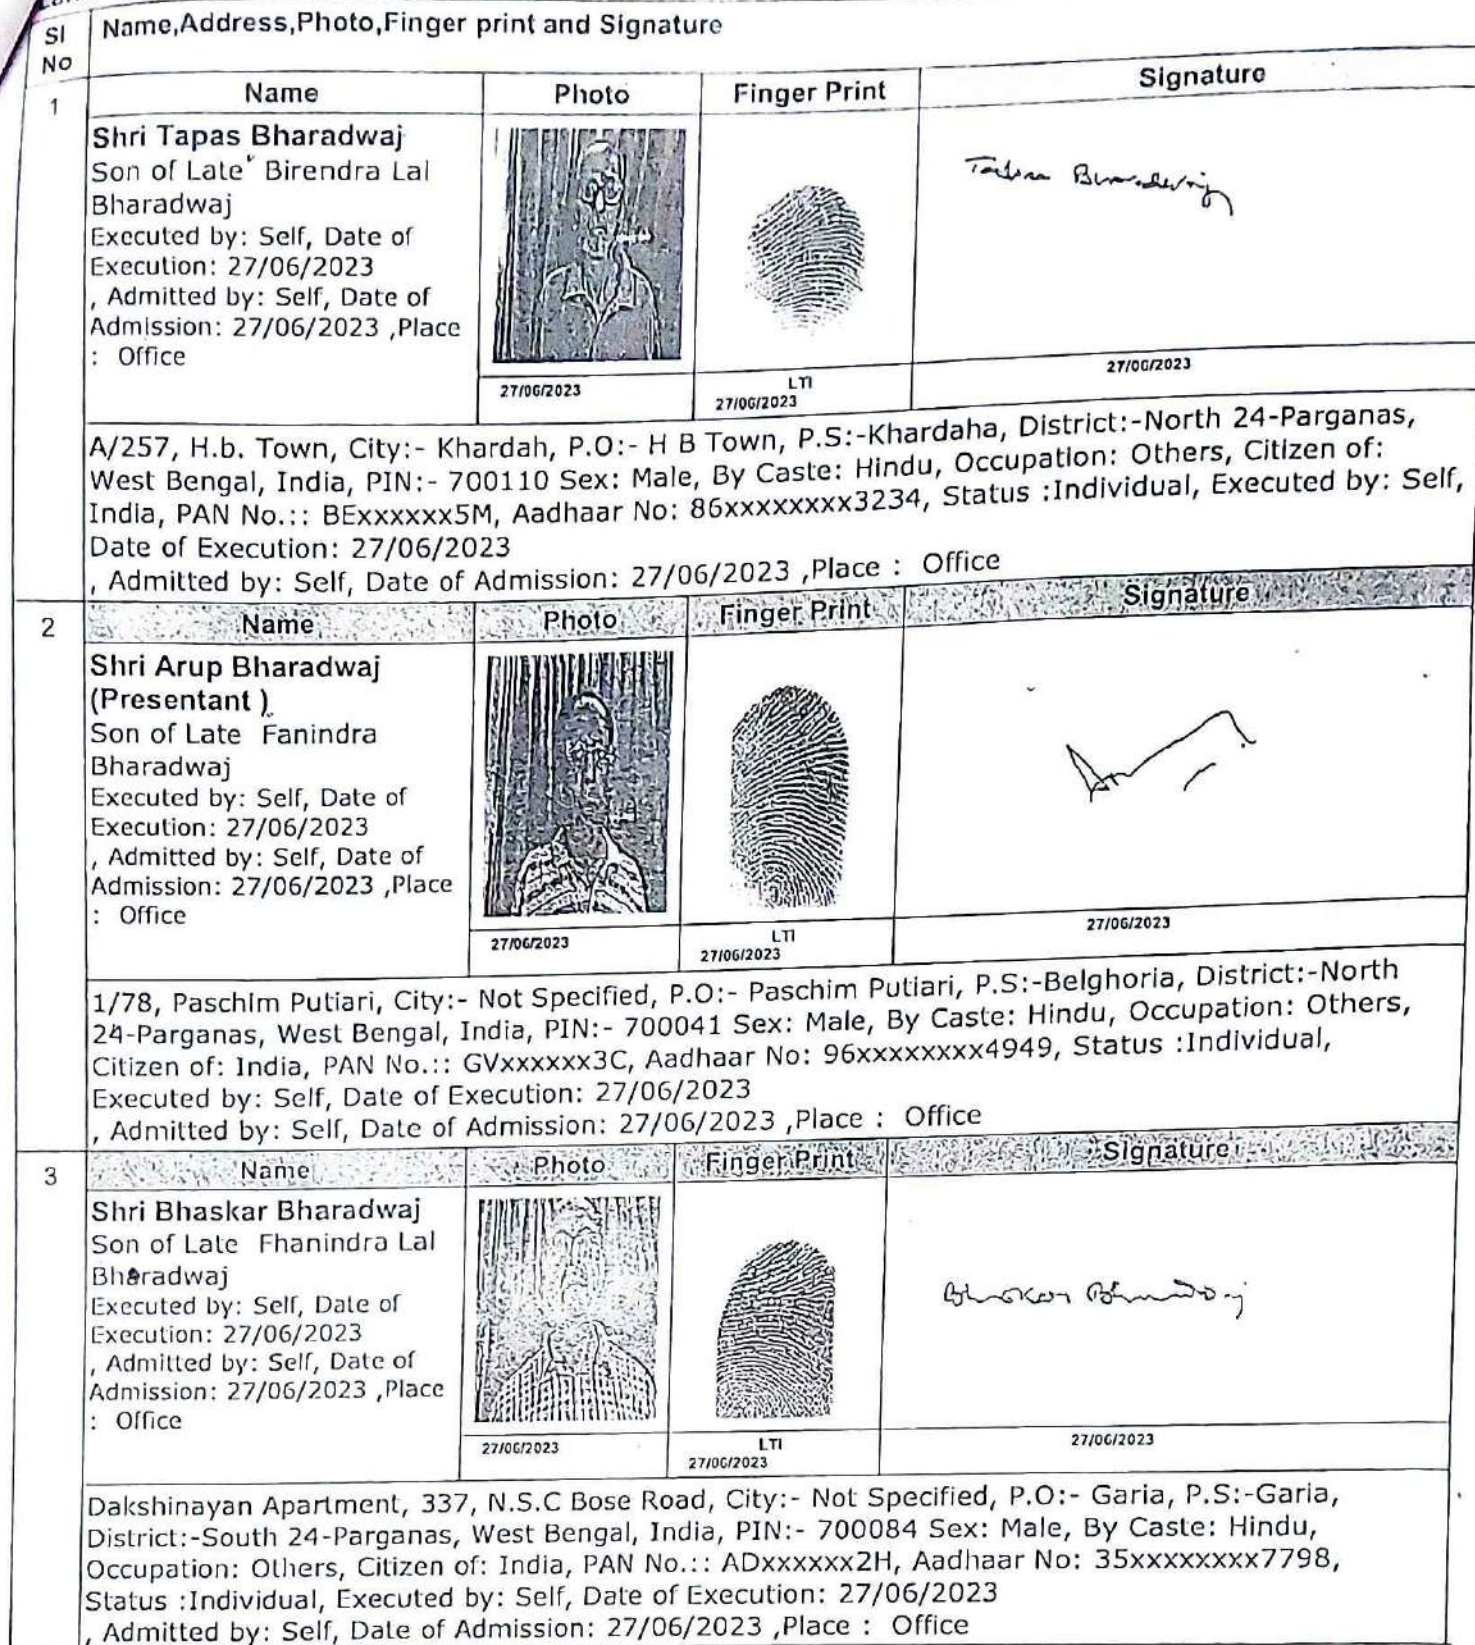 Sl
No
Name,Address,Photo,Finger print and Signature
1
Name
Photo
Finger Print
Signature
Shri Tapas Bharadwaj
Son of Late Birendra Lal
Bharadwaj
Executed by: Self, Date of
Execution: 27/06/2023
, Admitted by: Self, Date of
Admission: 27/06/2023 ,Place
: Office
27/06/2023
LTI
27/06/2023
27/06/2023
A/257, H.b. Town, City:- Khardah, P.O:- H B Town, P.S:-Khardaha, District:-North 24-Parganas,
West Bengal, India, PIN:- 700110 Sex: Male, By Caste: Hindu, Occupation: Others, Citizen of:
India, PAN No.:: BExxxxxx5M, Aadhaar No: 86xxxxxxxx3234, Status :Individual, Executed by: Self,
Date of Execution: 27/06/2023
, Admitted by: Self, Date of Admission: 27/06/2023 ,Place : Office
2
Name
Photo
Finger Print
Signature
Shri Arup Bharadwaj
(Presentant )
Son of Late Fanindra
Bharadwaj
Executed by: Self, Date of
Execution: 27/06/2023
, Admitted by: Self, Date of
Admission: 27/06/2023 ,Place
: Office
27/06/2023
LTI
27/06/2023
27/06/2023
1/78, Paschim Putiari, City:- Not Specified, P.O:- Paschim Putiari, P.S:-Belghoria, District:-North
24-Parganas, West Bengal, India, PIN:- 700041 Sex: Male, By Caste: Hindu, Occupation: Others,
Citizen of: India, PAN No.:: GVxxxxxx3C, Aadhaar No: 96xxxxxxxx4949, Status :Individual,
Executed by: Self, Date of Execution: 27/06/2023
, Admitted by: Self, Date of Admission: 27/06/2023 ,Place : Office
3
Name
Photo
Finger Print
Signature
Shri Bhaskar Bharadwaj
Son of Late Fhanindra Lal
Bharadwaj
Executed by: Self, Date of
Execution: 27/06/2023
, Admitted by: Self, Date of
Admission: 27/06/2023 ,Place
: Office
Bhaskar Bharadwaj
27/06/2023
LTI
27/06/2023
27/06/2023
Dakshinayan Apartment, 337, N.S.C Bose Road, City:- Not Specified, P.O:- Garia, P.S:-Garia,
District:-South 24-Parganas, West Bengal, India, PIN:- 700084 Sex: Male, By Caste: Hindu,
Occupation: Others, Citizen of: India, PAN No.:: ADxxxxxx2H, Aadhaar No: 35xxxxxxxx7798,
Status :Individual, Executed by: Self, Date of Execution: 27/06/2023
, Admitted by: Self, Date of Admission: 27/06/2023 ,Place : Office